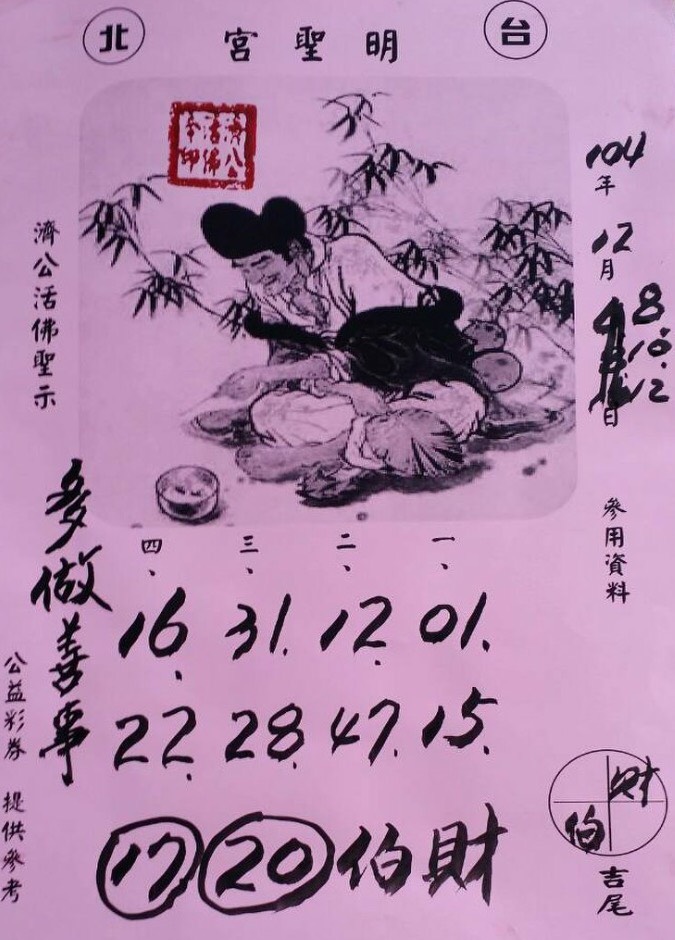 台 明聖宮 北
104年
12月
8.10.12日
參用資料
一、 二、 三、 四、
01. 12. 31. 16.
15. 47. 28. 22.
財伯 20 17
財
伯
吉尾
濟公活佛聖示
多做善事
公益彩券 提供參考